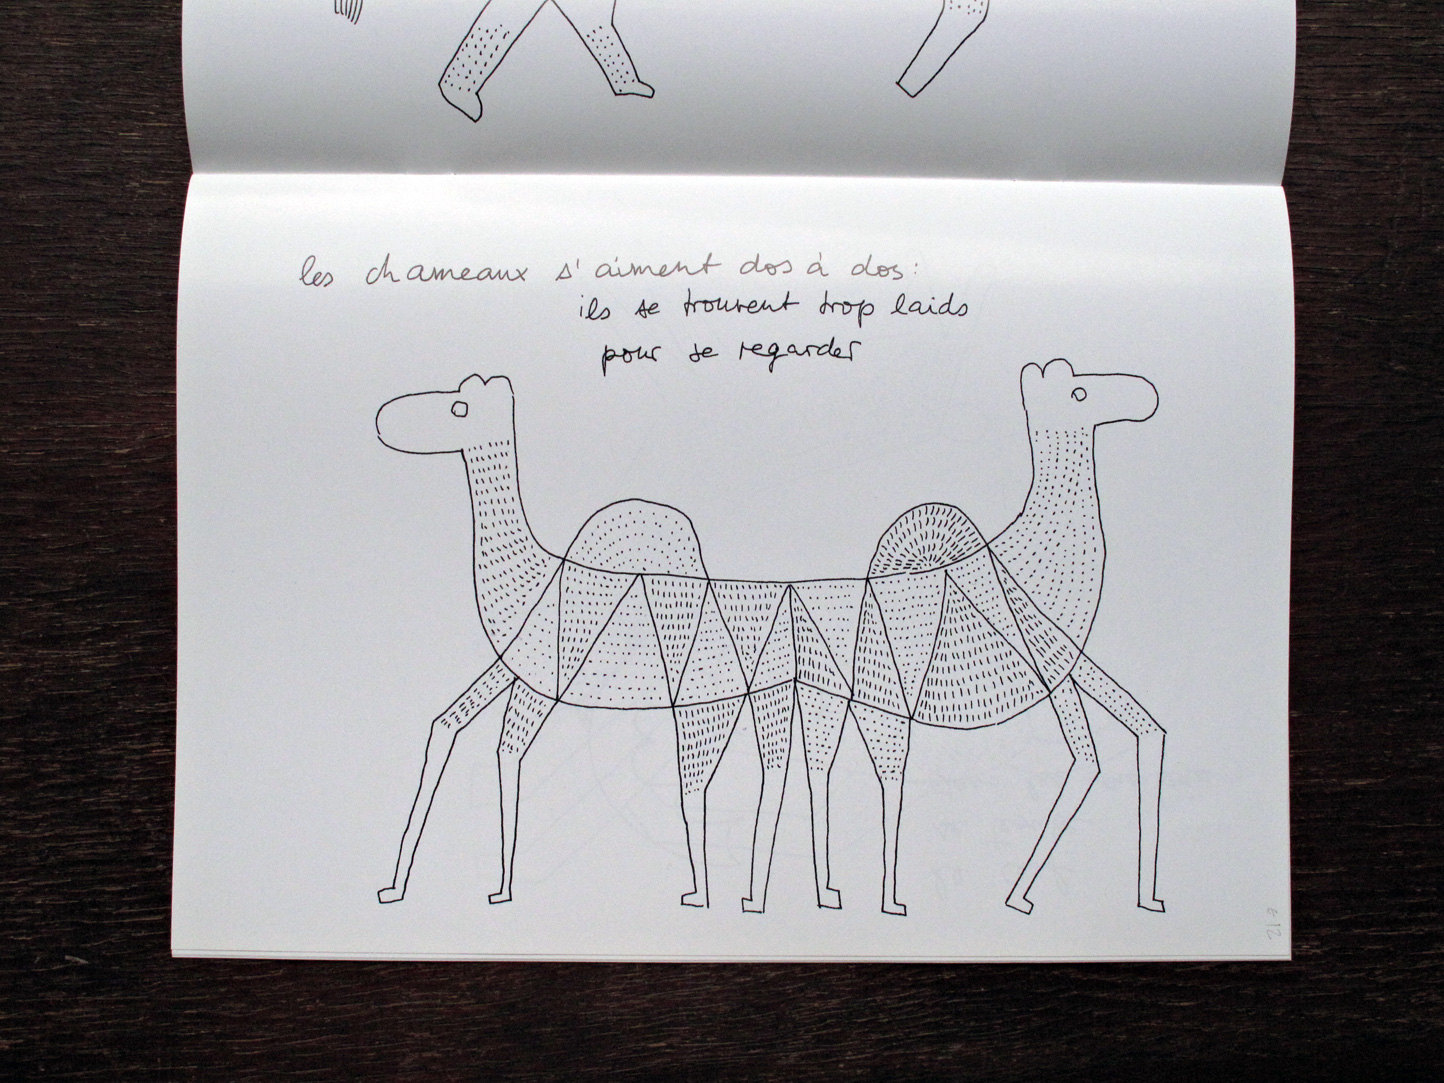 les chameaux s'aiment dos à dos :
ils se trouvent trop laids
pour se regarder